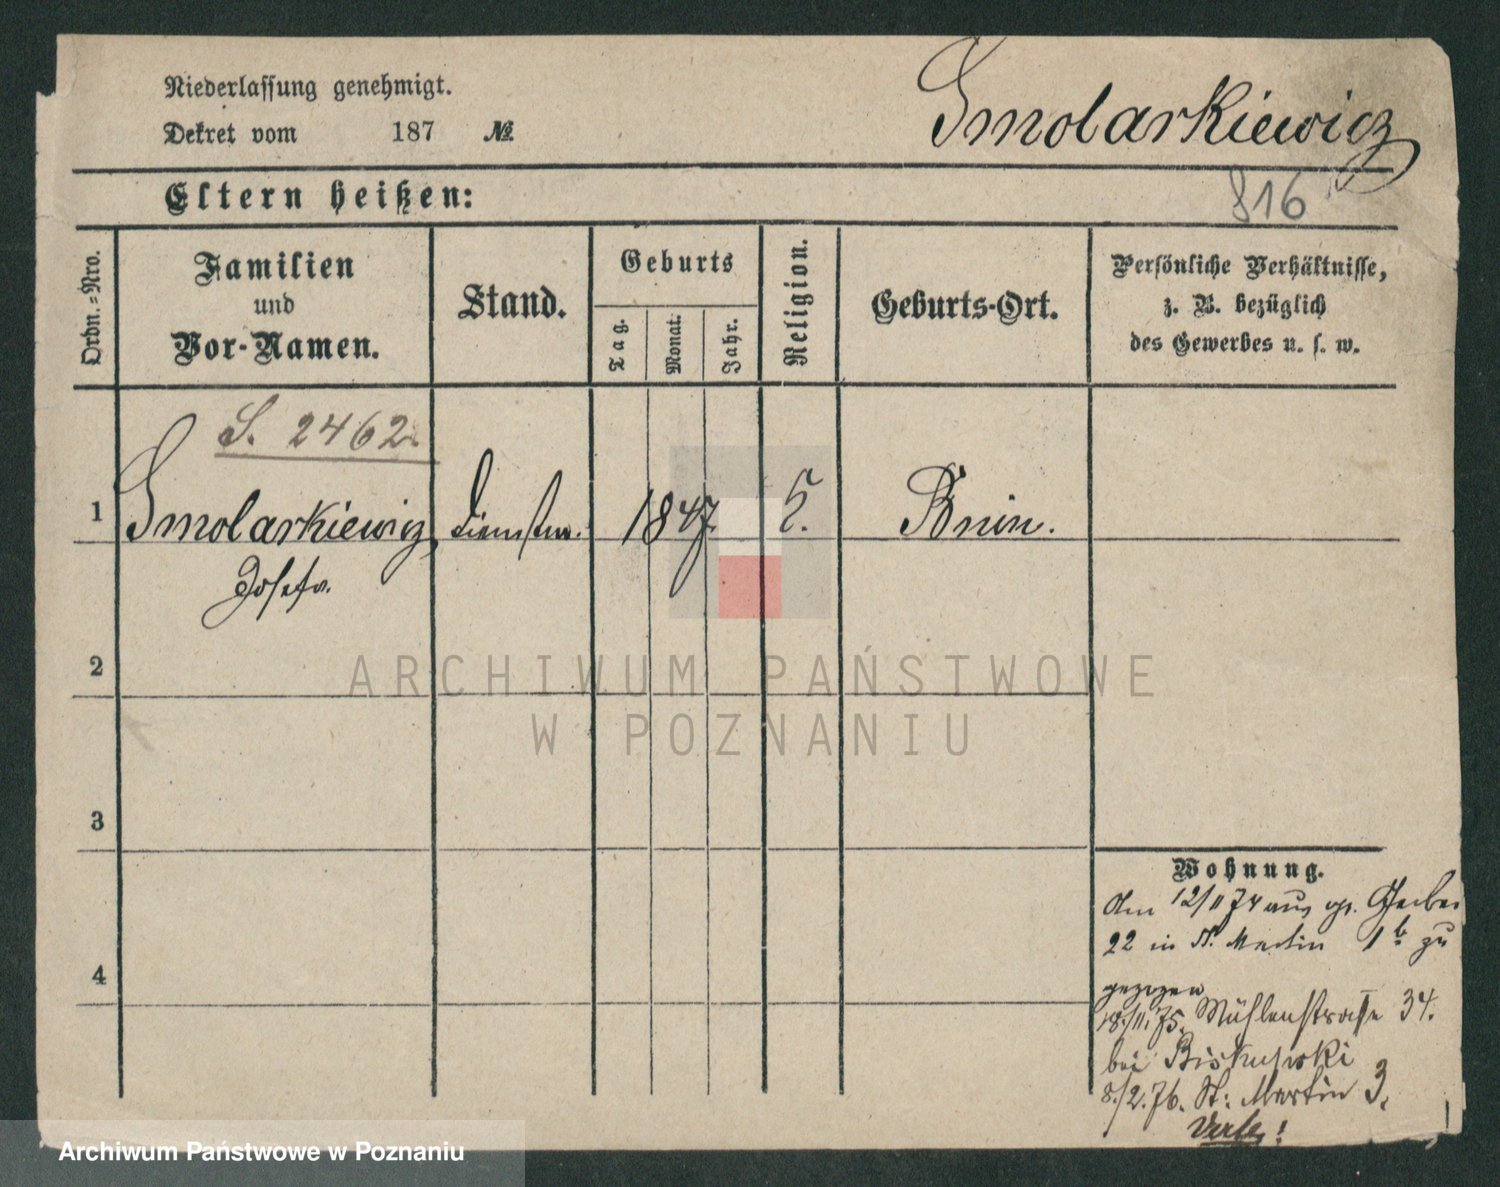 Niederlassung genehmigt.
Dekret vom 187 №
Smolarkiewicz
816
Eltern heißen:
Ordn.-Nro.
Familien
und
Vor-Namen.
Stand.
Geburts
Tag.
Monat.
Jahr.
Religion.
Geburts-Ort.
Persönliche Verhältnisse,
z. B. bezüglich
des Gewerbes u. s. w.
S. 2462.
1 Smolarkiewicz, 1847. Bnin.
Josefa.
2
ARCHIWUM PAŃSTWOWE
W POZNANIU
3
4
Wohnung.
Am 12/11 74 aus gr. Gerber
22 in St. Martin 1b zu
gezogen
18./11. 75. Mühlenstraße 34.
bei
8./2. 76. St. Martin 3.
Archiwum Państwowe w Poznaniu